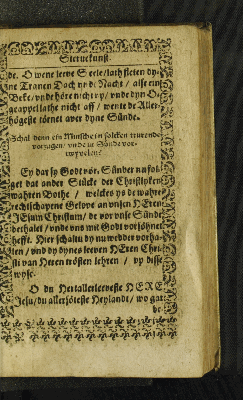 Steruekunst.
de. O wene leeve Seele/ lath fleten dy-
ne Tranen Dach vnde Nacht / alse eine
Beke/ vnde höre nicht vp/ vnde dyn O-
genappel lathe nicht aff / wente de Aller-
högeste töenet aver dyne Sünde.
Schal denn ein Minsche in solcken trurende
vortzagen/ vnde in Sünde vor-
twyvelen?
Ey dar sy Godt vör. Sünder nu fol-
get dat ander Stücke der Christlyken
wahren Bothe / welckes ys de wahre
rechtschapene Gelove an vnsen HEren
JEsum Christum/ de vor vnse Sünde
bethalet / vnde vns mit Godt vorsöhnet
hefft. Hier schaltu dy nu wedder vorha-
len / vnd dy dynes leven HEren Chri-
sti van Herten trösten lehren / vp disse
wyse.
O du Hertallerleeveste HERE
Jesu/ du allersöteste Heylandt/ wo gar
be